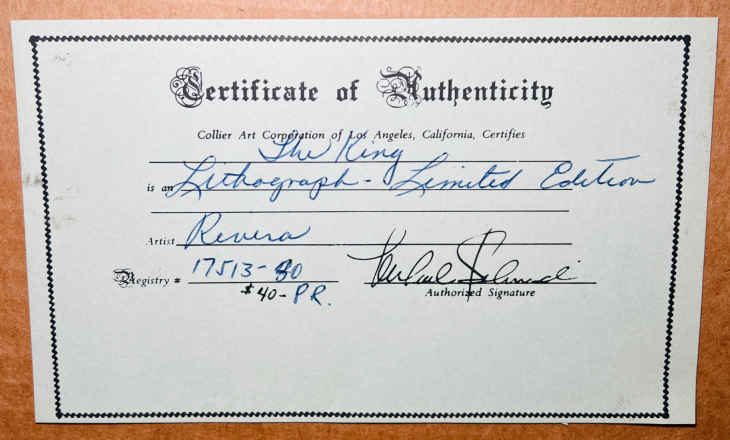 Certificate of Authenticity
Collier Art Corporation of Los Angeles, California, Certifies
The King
is an Lithograph - Limited Edition
Artist Rivera
Registry # 17513-80
$40- P.R.
Authorized Signature